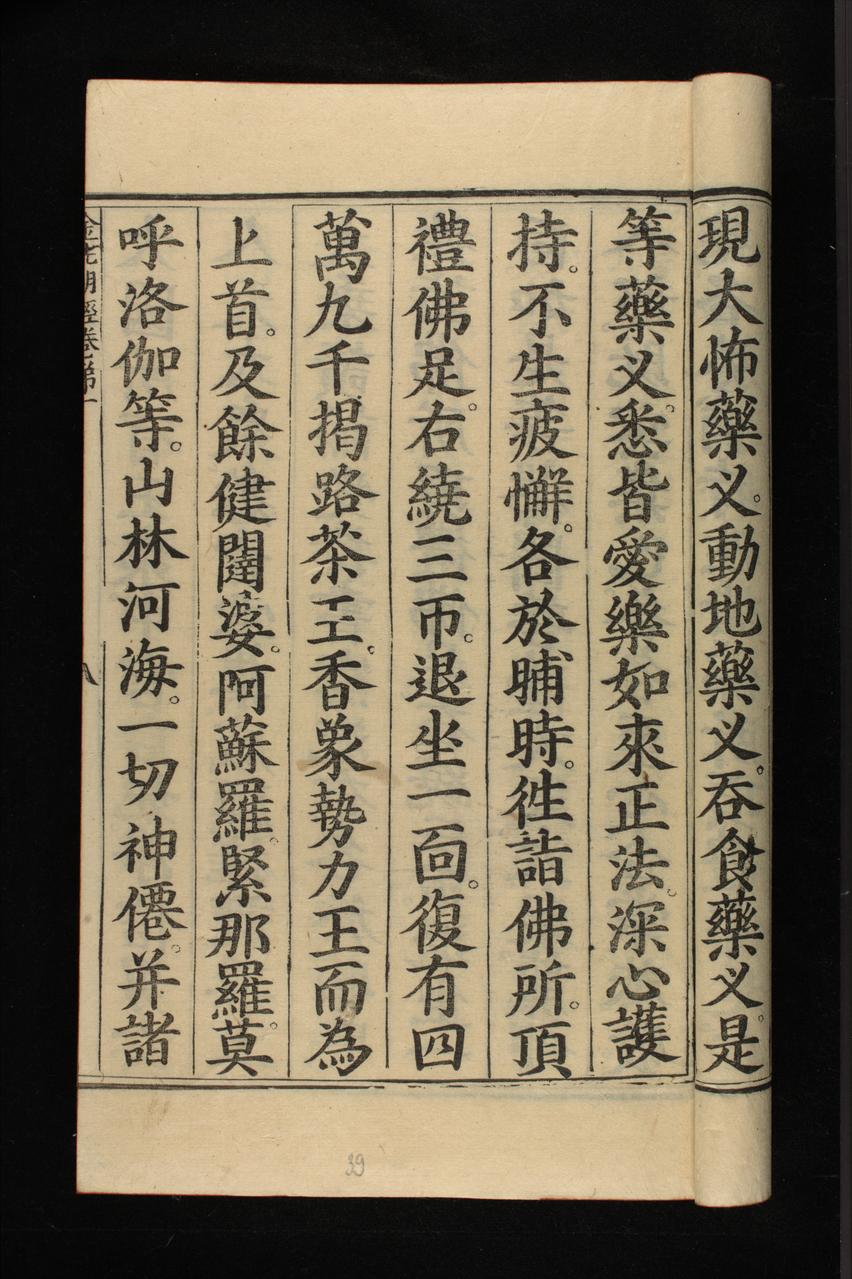 現大怖藥义。動地藥义。吞食藥义。是
等藥义。悉皆愛樂如來正法。深心護
持。不生疲懈。各於晡時。徃詣佛所。頂
禮佛足。右繞三帀。退坐一面。復有四
萬九千揭路茶王。香象勢力王而為
上首。及餘健闥婆。阿蘇羅。緊那羅。莫
呼洛伽等。山林河海。一切神僊。并諸
金光明經卷第一
八
39